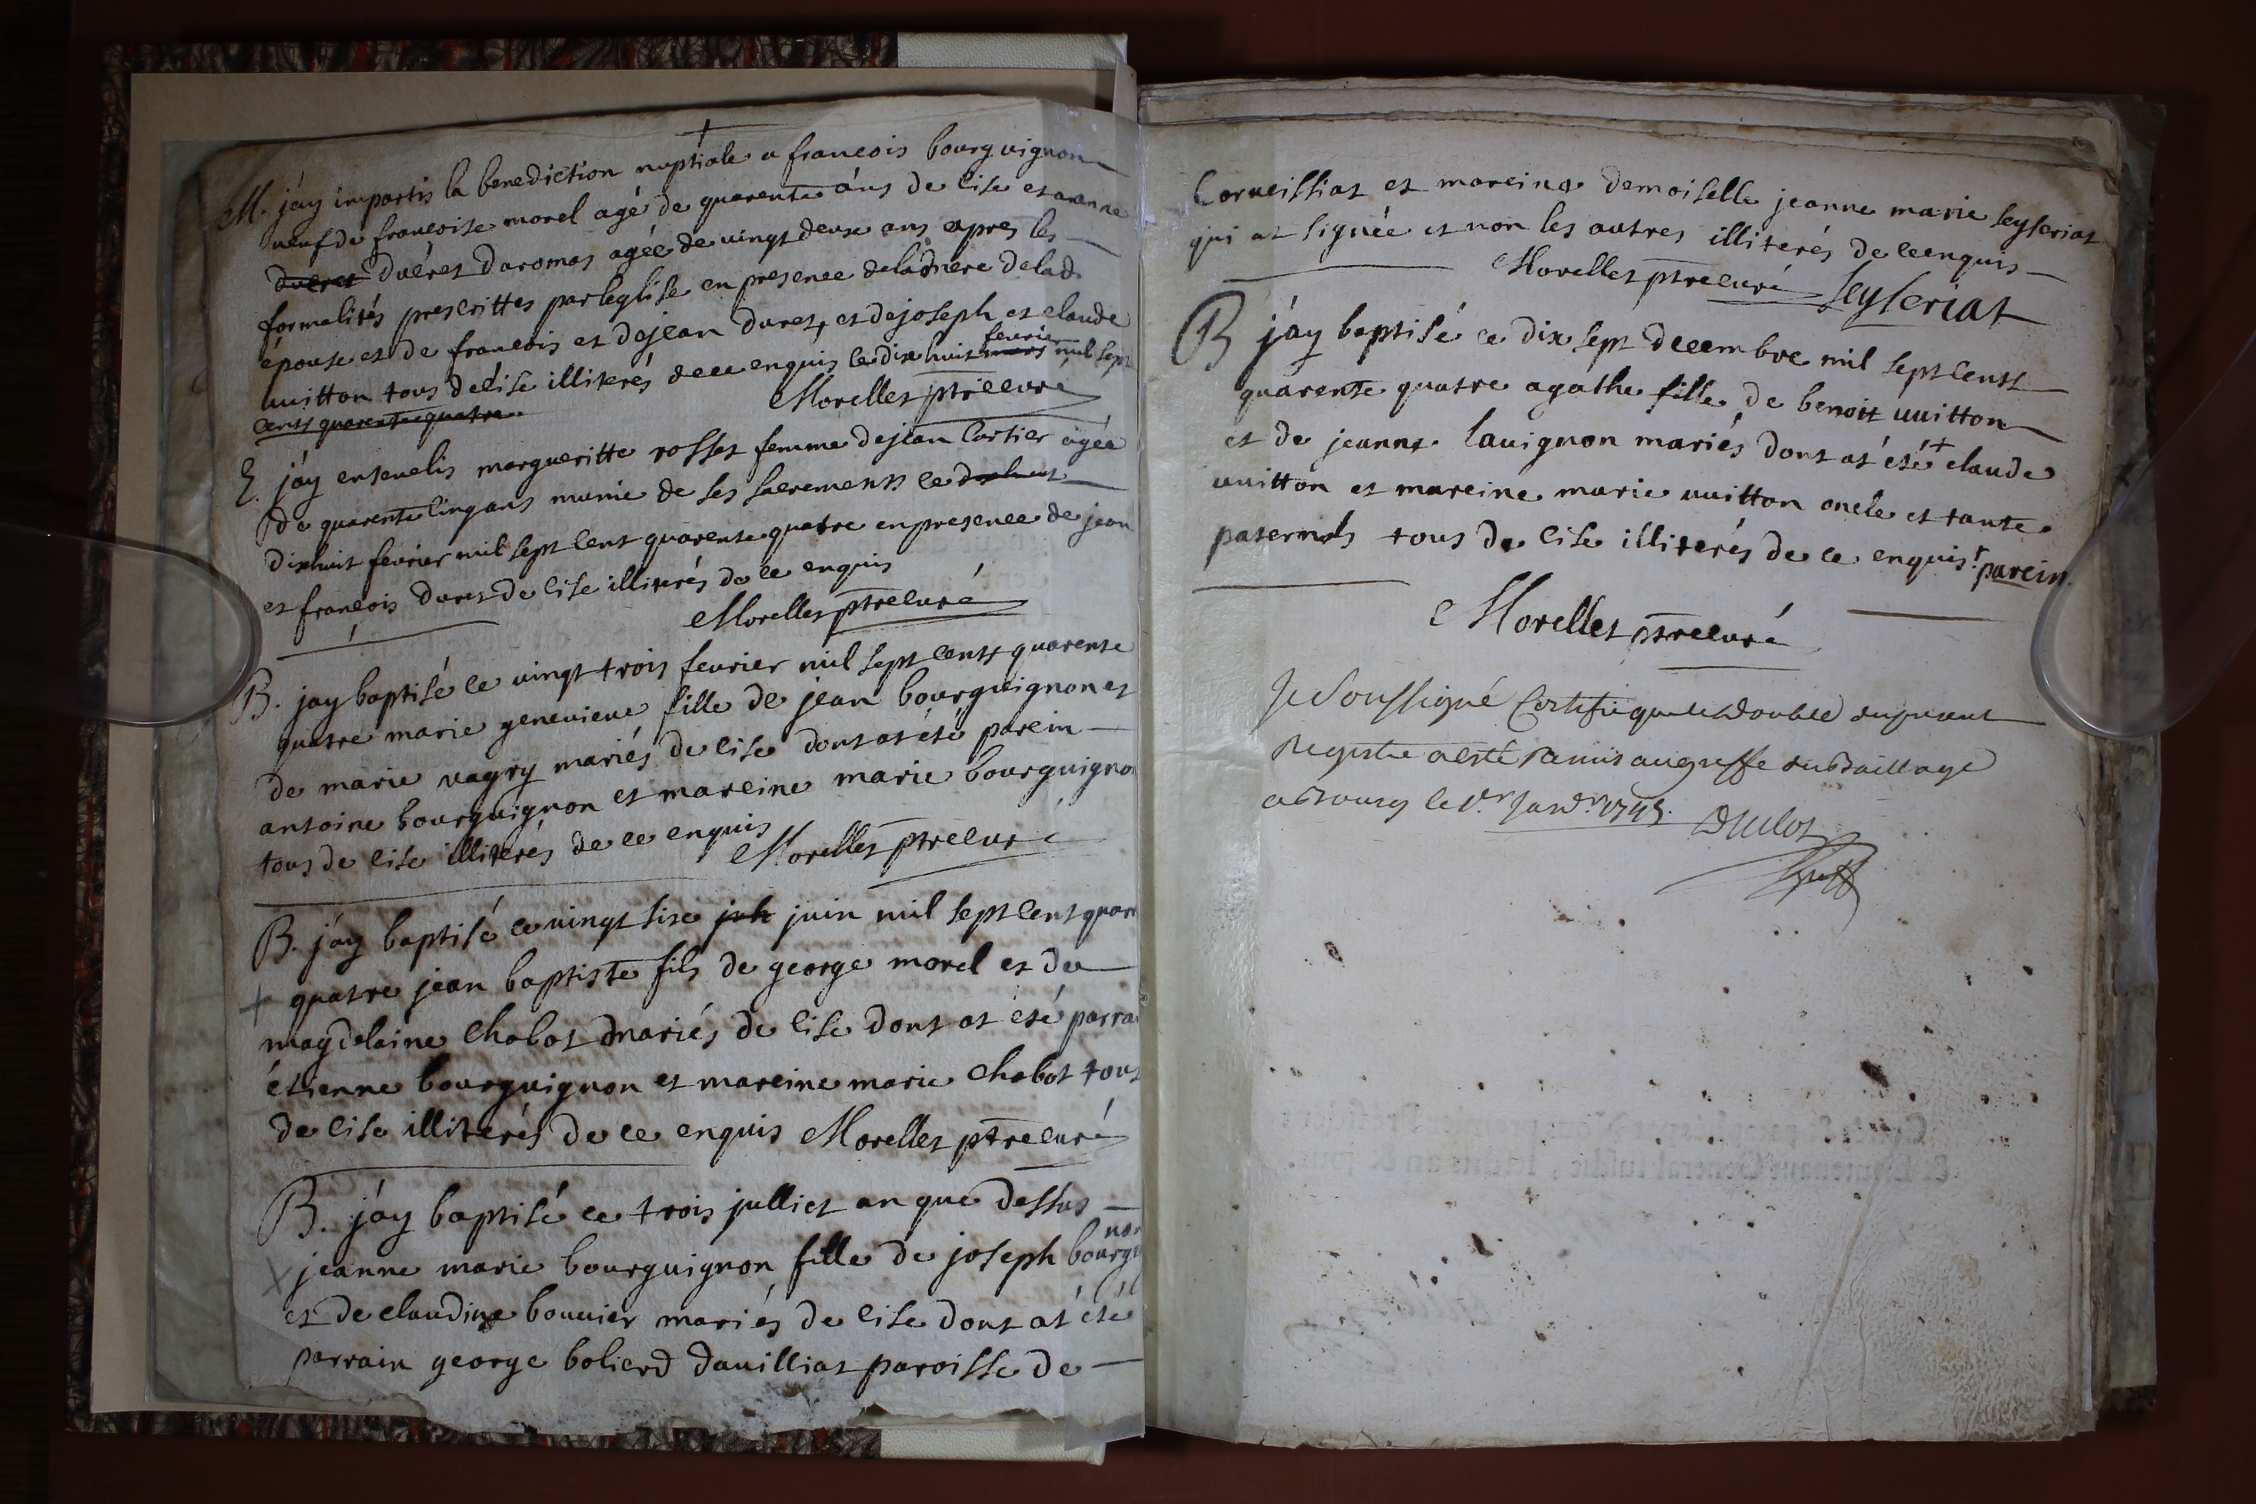 M. jáy impartis la benediction nuptiale a francois bourguignon
veuf de francoise morel agé de quarente áns de cise et a anne
dueret duéret daromas agée de vingt deux ans apres les
formalités prescrittes par leglise en presence de la mere de lad
épouse et de francois et de jean duret, et de joseph et claude
vuitton tous de cise illiterés de ce enquis le dix huit mars fevrier mil sept
cents quarente quatre Morellet ptre curé
E. jáy ensevelis margueritte rosset femme de jean Cortier ágée
de quarente cinq ans munie de ses sacrements ce dixhuit
dixhuit fevrier mil sept cent quarente quatre en presence de jean
et francois duret de cise illiterés de ce enquis
Morellet ptre curé
B. jay baptisé ce vingt trois fevrier mil sept cents quarente
quatre marie genevieve fille de jean bourguignon et
de marie vagry mariés de cise dont at été parein
antoine bourguignon et mareine marie bourguigno
tous de cise illiterés de ce enquis Morellet ptre curé
B. jáy baptisé ce vingt sixe juin mil sept cent quar
quatre jean baptiste fils de george morel et de
magdelaine Chabot mariés de cise dont at été parra
étienne bourguignon et mareine marie Chabot tout
de cise illiterés de ce enquis Morellet ptre curé
B. jáy baptisé ce trois julliet an que dessus
jeanne marie bourguignon fille de joseph bourgui non
et de claudine bouvier mariés de cise dont at été
parrain george bolierd davilliat paroisse de
Corveissiat et mareine demoiselle jeanne marie seyseriat
qui at signée et non les autres illiterés de ce enquis
Morellet ptre curé Seyseriat
B jáy baptisé ce dix sept decembre mil sept cents
quarente quatre agathe fille de benoitt vuitton
et de jeanne lavignon mariés dont at été + claude
vuitton et mareine marie vuitton oncle et tante
paternels tous de cise illiterés de ce enquis. + parein.
Morellet ptre curé
Je Soussigné Certifie que le double du present
Registre a esté Remis au greffe du Baillage
a Bourg le 1.er Janv.r 1745. Duclos
greff